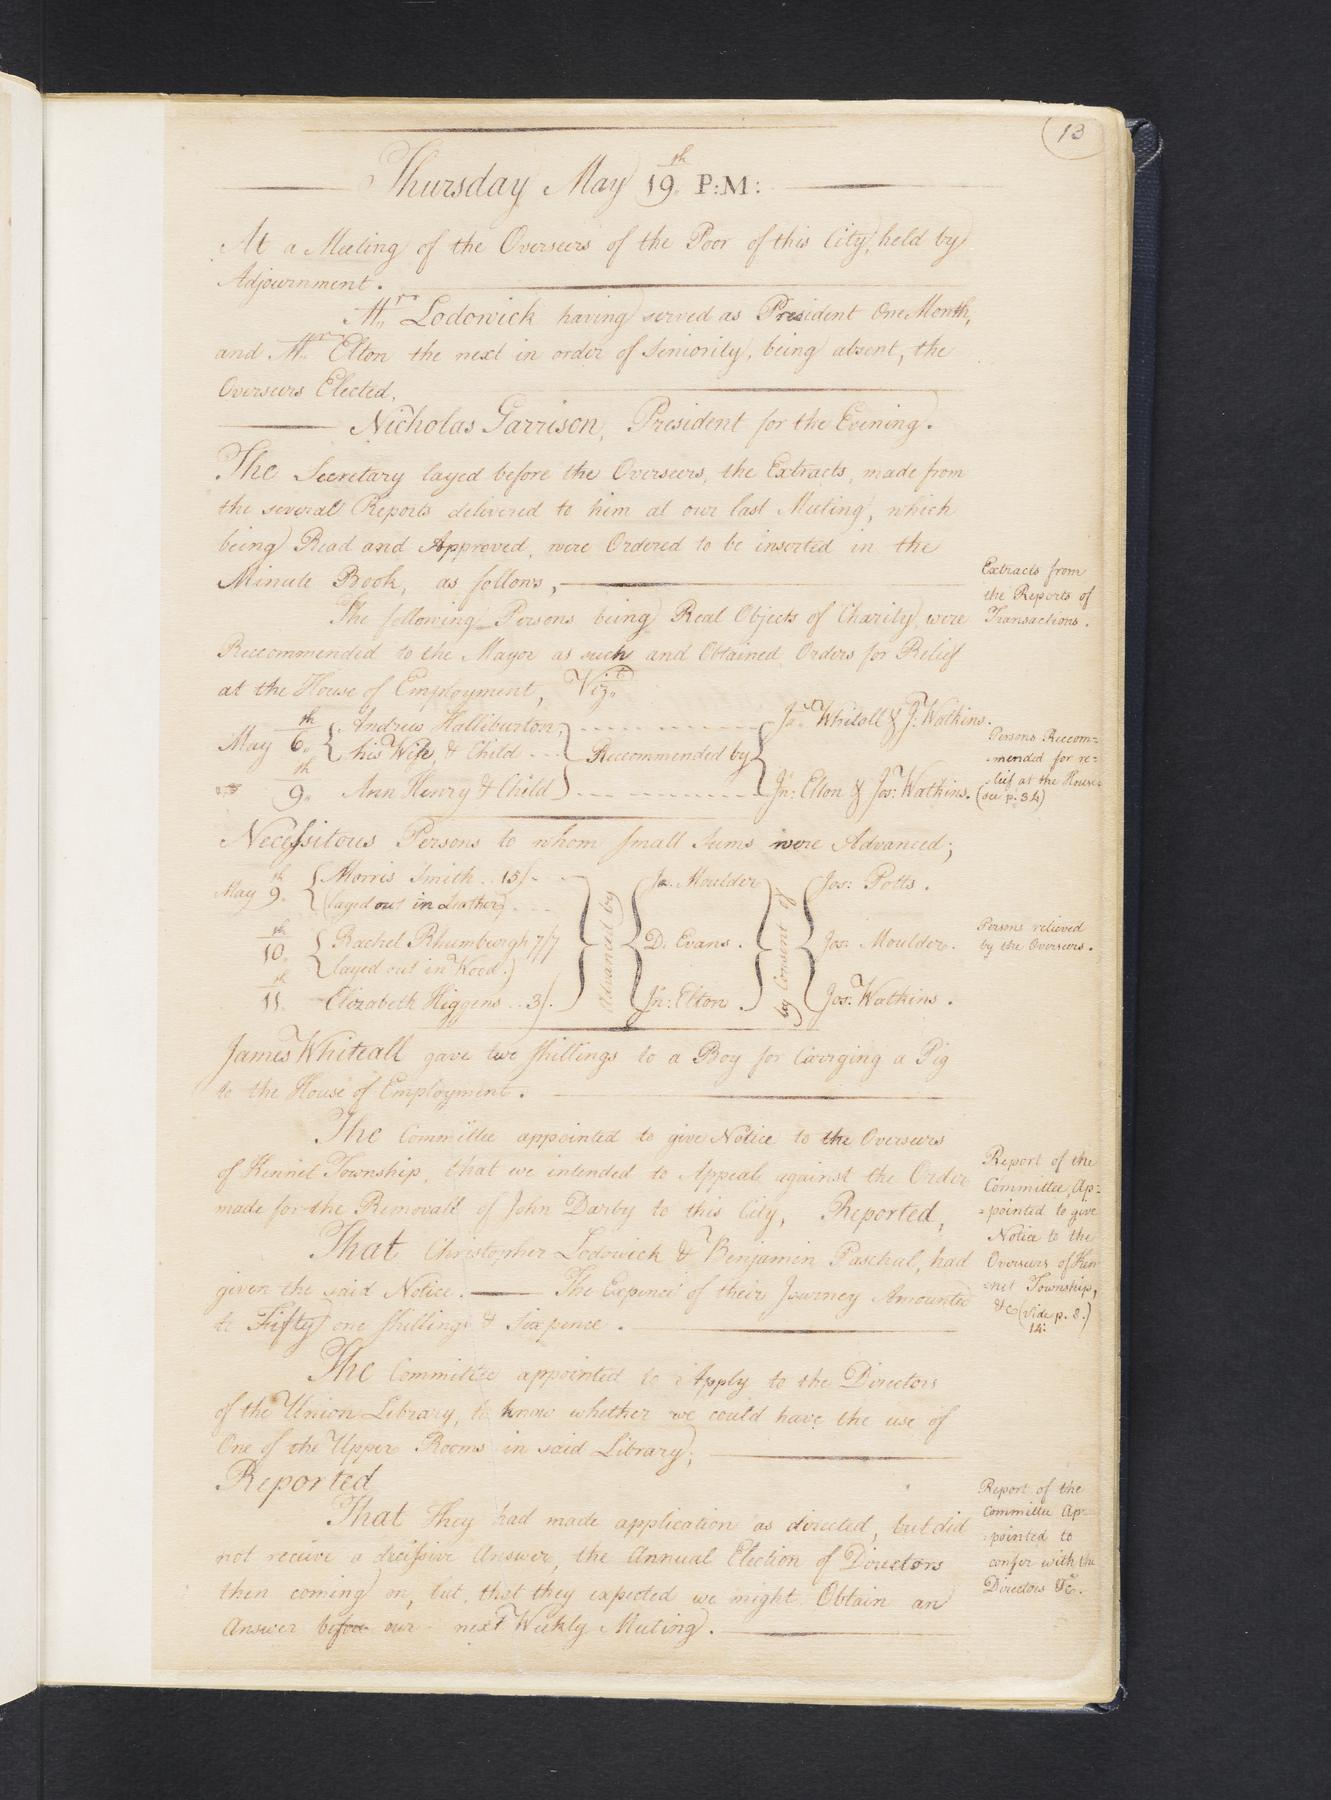 13
Thursday May 19th. P:M:
At a Meeting of the Overseers of the Poor of this City, held by
Adjournment.
Mr. Lodowick having served as President One Month,
and Mr. Elton the next in order of Seniority, being absent, the
Overseers Elected,
Nicholas Garrison, President for the Evening.
The Secretary layed before the Overseers, the Extracts, made from
the several Reports delivered to him at our last Meeting, which
being Read and Approved, were Ordered to be inserted in the
Minute Book, as follows,
Extracts from
the Reports of
Transactions.
The following Persons being Real Objects of Charity, were
Reccommended to the Mayor as such and Obtained Orders for Relief
at the House of Employment, Vizt.
May 6th. { Andrew Halliburton, his Wife, & Child } Reccommended by { Jas. Whitall & J. Watkins.
9th. Ann Henry & Child } Jn: Elton & Jos: Watkins.
Persons Reccom=
mended for re=
lief at the House
(see p. 34)
Necessitous Persons to whom small Sums were Advanced;
May 9th. { Morris Smith .. 15/- (layed out in Leather) } Advanced by { Jos. Moulder } by Consent of { Jos: Potts.
10th. { Rachel Rhumburgh 7/7 (layed out in Wood.) D. Evans. Jos: Moulder.
11th. Elizabeth Higgens .. 3/. Jn: Elton. Jos: Watkins.
Persons relieved
by the Overseers.
James Whiteall gave two shillings to a Boy for Carrying a Pig
to the House of Employment.
The Committee appointed to give Notice to the Overseers
of Kennet Township, that we intended to Appeal against the Order
made for the Removall of John Darby to this City, Reported,
That Christopher Lodowick & Benjamin Paschal, had
given the said Notice. The Expence of their Journey Amounted
to Fifty one shillings & Sixpence.
Report of the
Committee, Ap=
=pointed to give
Notice to the
Overseers of Ken
=net Township,
&c (vide p. 8.)
14:
The Committee appointed to Apply to the Directors
of the Union Library, to know whether we could have the use of
One of the Upper Rooms in said Library;
Reported
That they had made application as directed, but did
not receive a decissive Answer, the Annual Election of Directors
then coming on, but, that they expected we might Obtain an
Answer before our next Weekly Meeting.
Report of the
Committee Ap=
=pointed to
confer with the
Directors &c.